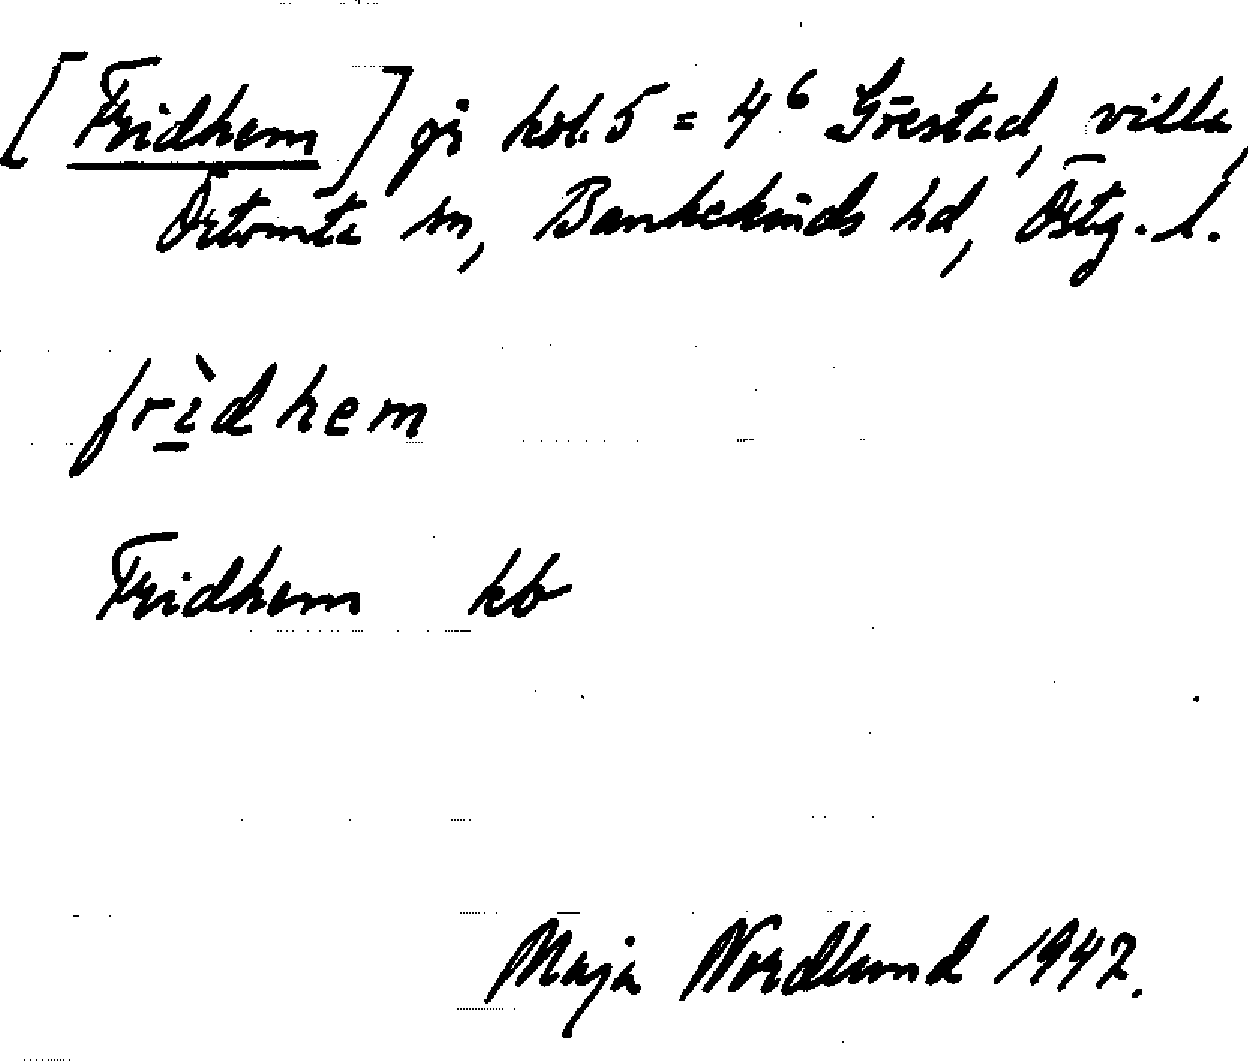 [Fridhem] på hsl. 5 = 4⁶ Görstad, villa,
Örtomta sn, Bankekinds hd, Östg. l.
frìdhem
Fridhem kb
Maja Nordlund 1942.